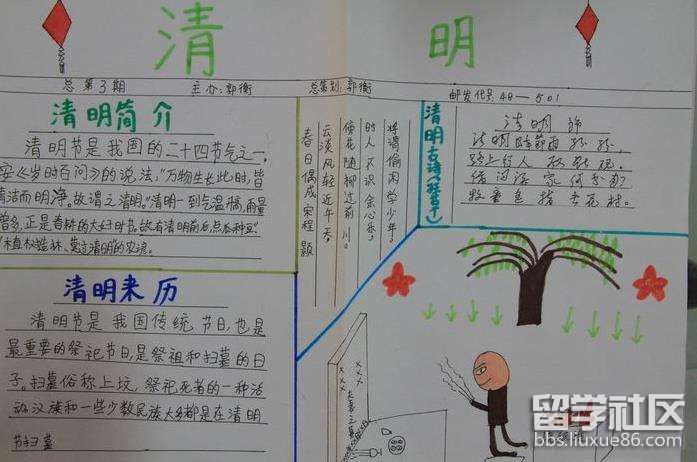 清 明
总第3期 主办:郭衡 总策划:郭衡 邮发代号48—501
清明简介
清明节是我国的二十四节气之一,
《岁时百问》的说法,"万物生长此时,皆
清洁而明净,故谓之清明。"清明一到气温
多,正是春耕的大好时节。故有清明前后,点瓜种豆"
清明来历
清明节是我国传统节日,也是
最重要的祭祀节日,是祭祖和扫墓的日
子。扫墓俗称上坟,祭祀死者的一种活
动汉族和一些少数民族大都是在清明
节扫墓
春日偶成 宋程颢
云淡风轻近午天,
傍花随柳过前川。
时人不识余心乐,
将谓偷闲学少年。
清明古诗
清明
清明时节雨纷纷,
路上行人欲断魂。
牧童
留学社区
bbs.liuxue86.com